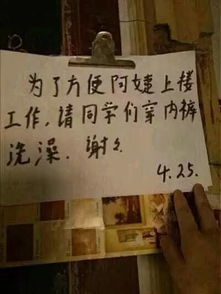 为了方便阿姨上楼
工作,请同学们穿内裤
洗澡.谢々
4.25.